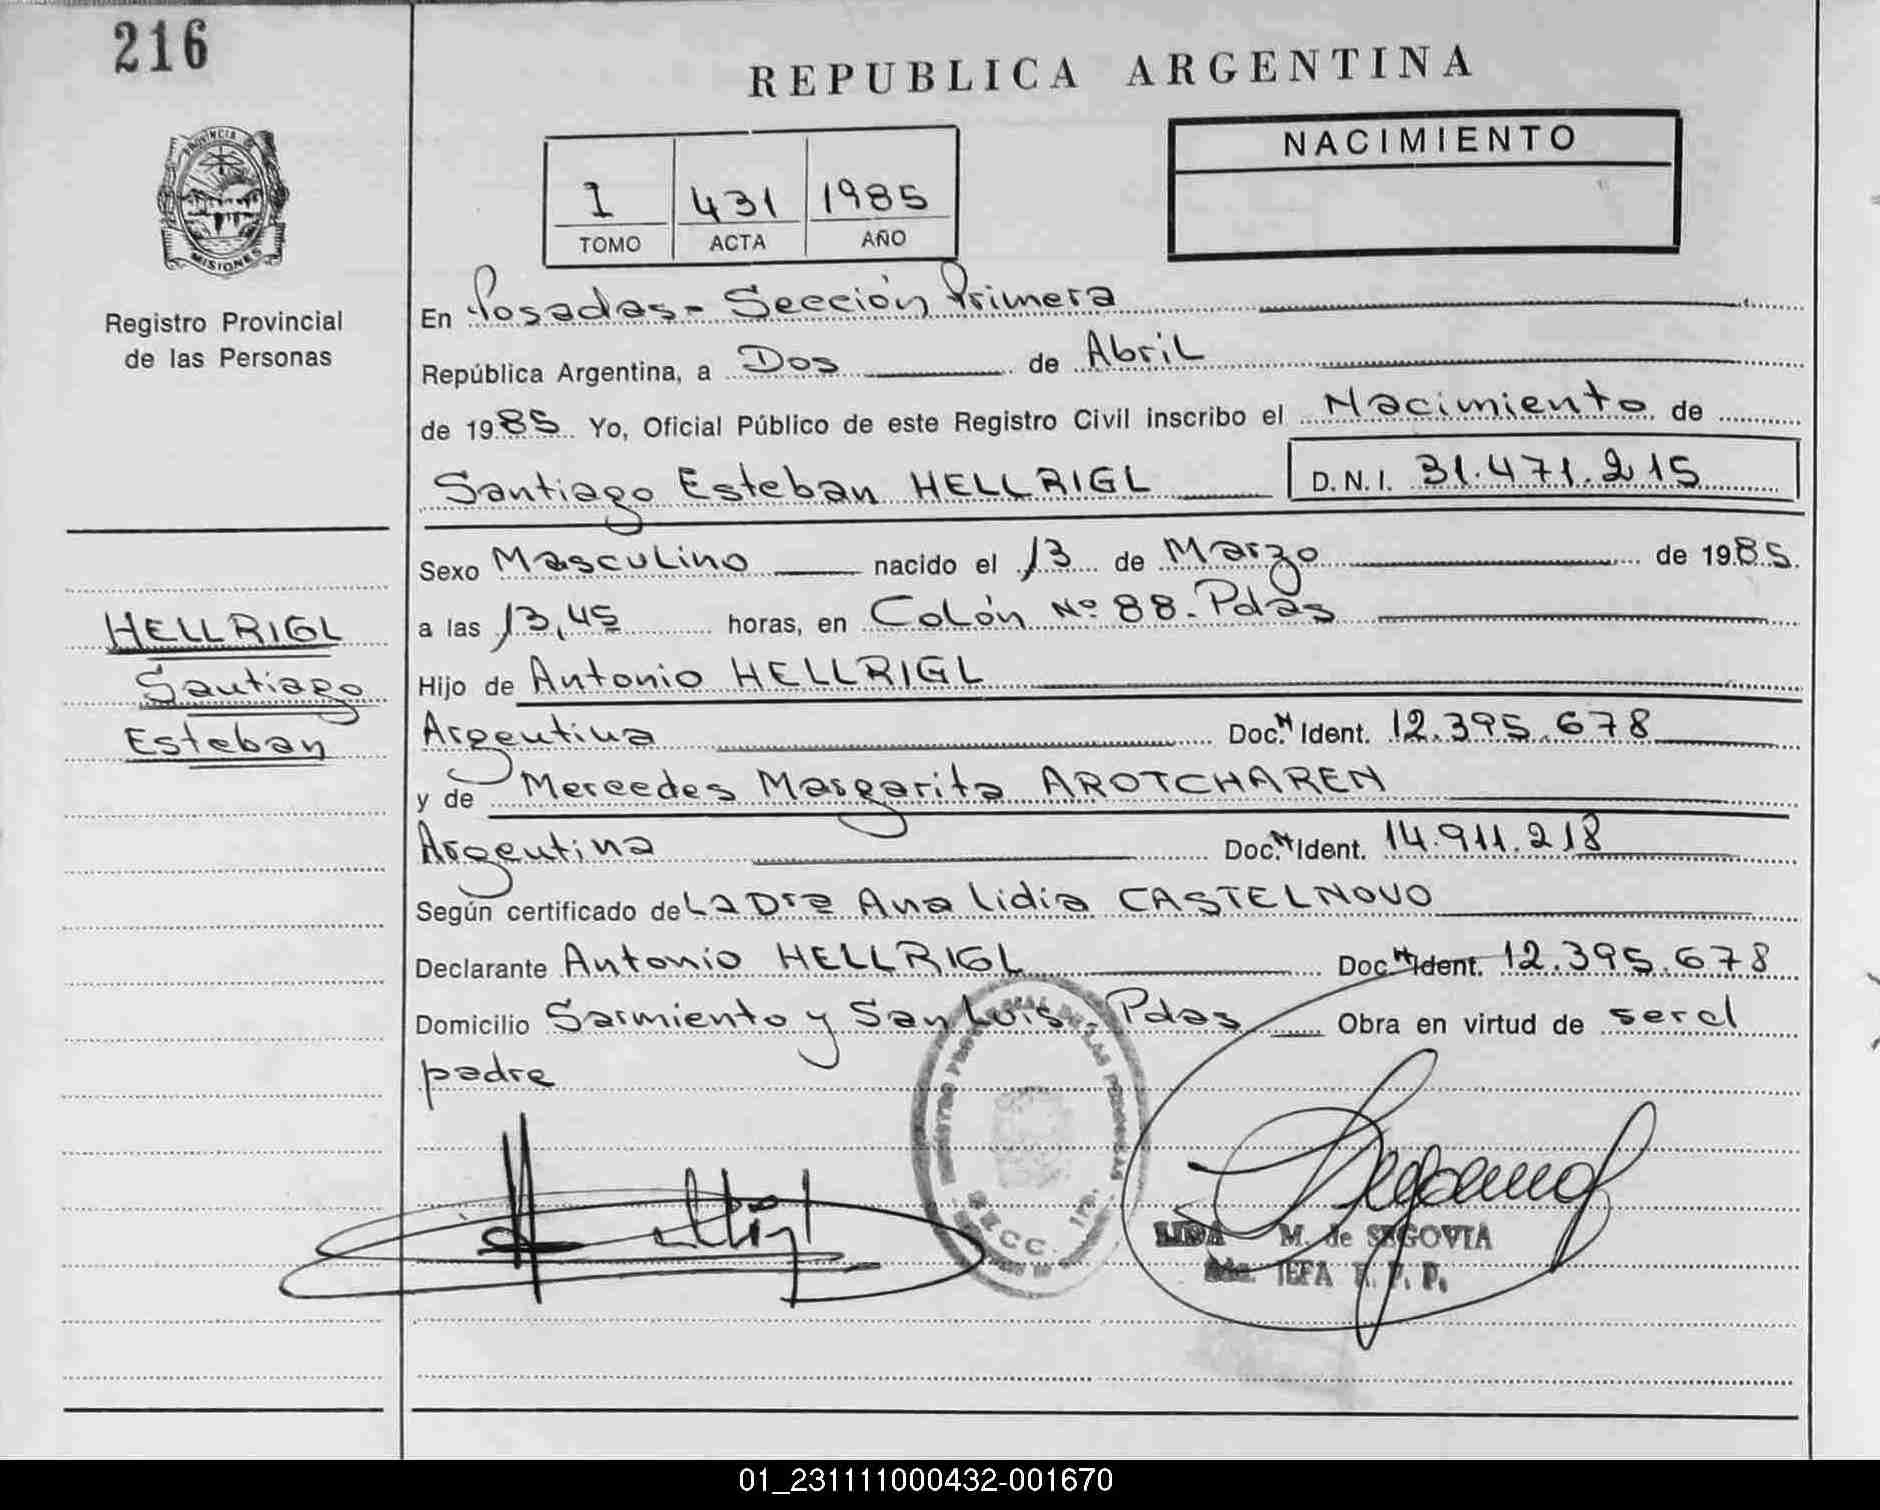 216
REPUBLICA ARGENTINA
NACIMIENTO
PROVINCIA DE
MISIONES
I 431 1985
TOMO ACTA AÑO
Registro Provincial
de las Personas
En Posadas - Sección Primera
República Argentina, a Dos de Abril
de 1985 Yo, Oficial Público de este Registro Civil inscribo el Nacimiento de
Santiago Esteban HELLRIGL D.N.I. 31.471.215
Sexo Masculino nacido el 13 de Marzo de 1985.
HELLRIGL
Santiago
Esteban
a las 13,45 horas, en Colón Nº 88. Pdas
Hijo de Antonio HELLRIGL
Argentina Doc. N Ident. 12.395.678
y de Mercedes Margarita AROTCHAREN
Argentina Doc. N Ident. 14.911.218
Según certificado de La Dra Ana Lidia CASTELNOVO
Declarante Antonio HELLRIGL Doc. N Ident. 12.395.678
Domicilio Sarmiento y San Luis. Pdas Obra en virtud de ser el
padre
REGISTRO PROVINCIAL DE LAS PERSONAS
SECC. 1ra.
M. de SEGOVIA
JEFA R. P. P.
01_231111000432-001670